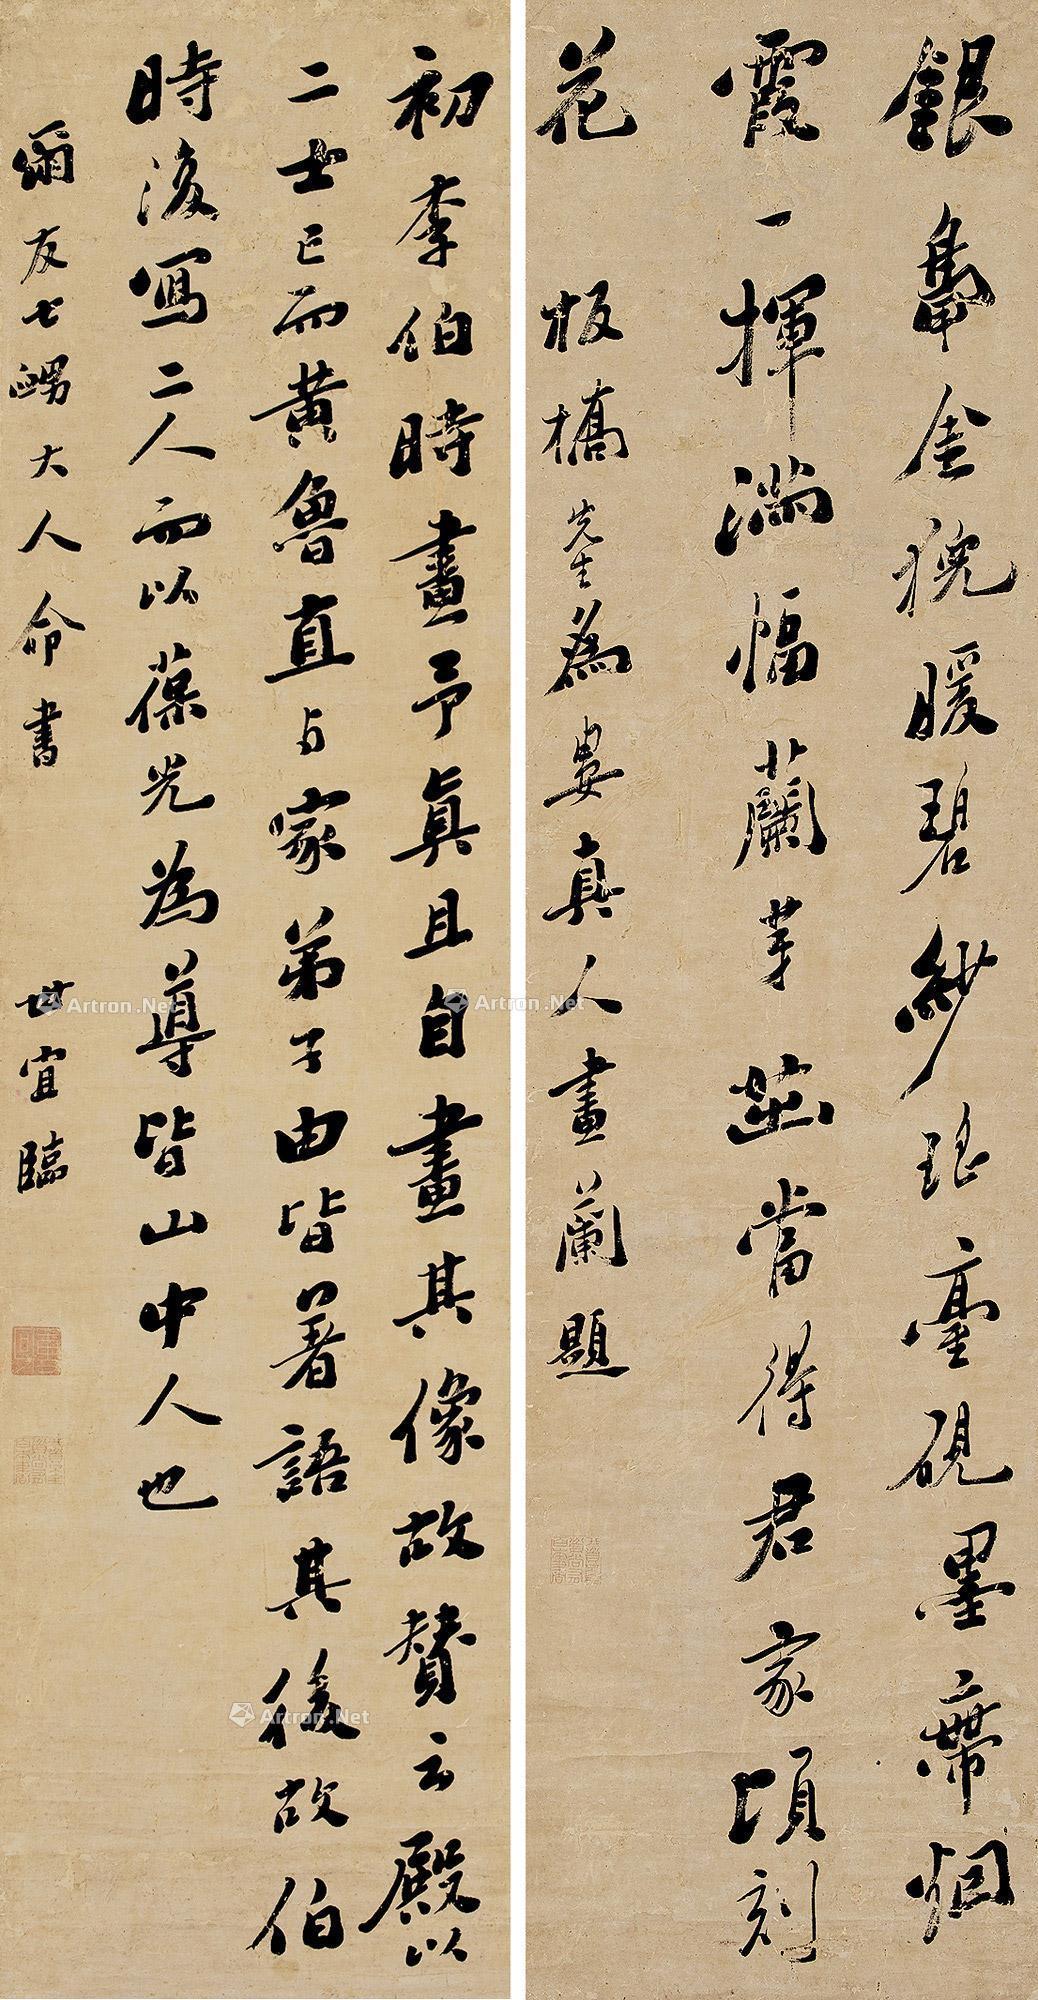 銀鴨金猊暖碧紗瑤臺硯墨帶烟
霞一揮滿幅蘭芽茁當得君家頃刻
花 板橋先生為婁真人畫蘭題
初李伯時畫予真且自畫其像故贊云殿以
二士已而黃魯直与家弟子由皆著語其後故伯
時後寫二人而以葆光為導皆山中人也
爾友七鷌大人命書 世宜臨
Artron.Net
Artron.Net
Artron.Net